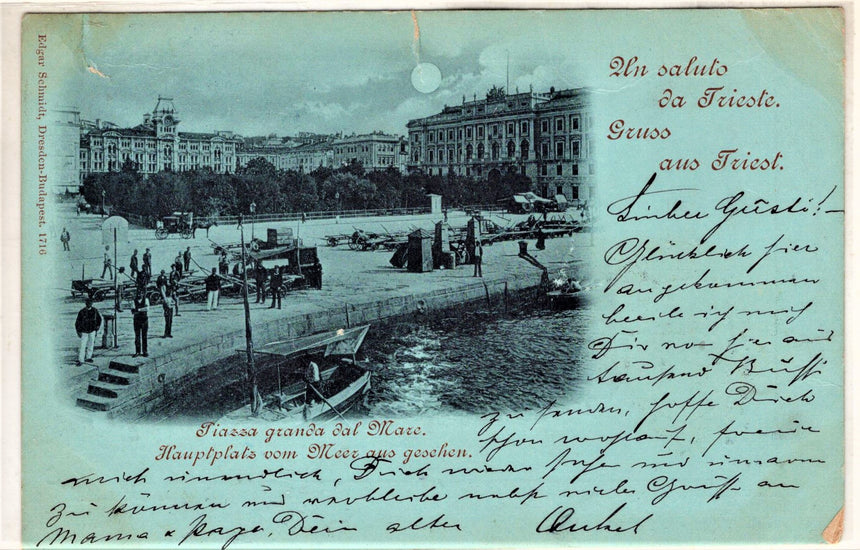 Edgar Schmidt, Dresden-Budapest. 1716
Un saluto
da Trieste.
Gruss
aus Triest.
Piazza granda dal Mare.
Hauptplatz vom Meer aus gesehen.
Lieber Gusti!
Glücklich hier
angekommen
beeile ich mich
Dir von hier aus
tausend Bussi
zu senden, hoffe Dich
schon wohlauf, freue
mich unendlich, Dich wieder sehen und umarmen
zu können und verbleibe nebst vielen Grüssen an
Mama & Papa, Dein alter Onkel